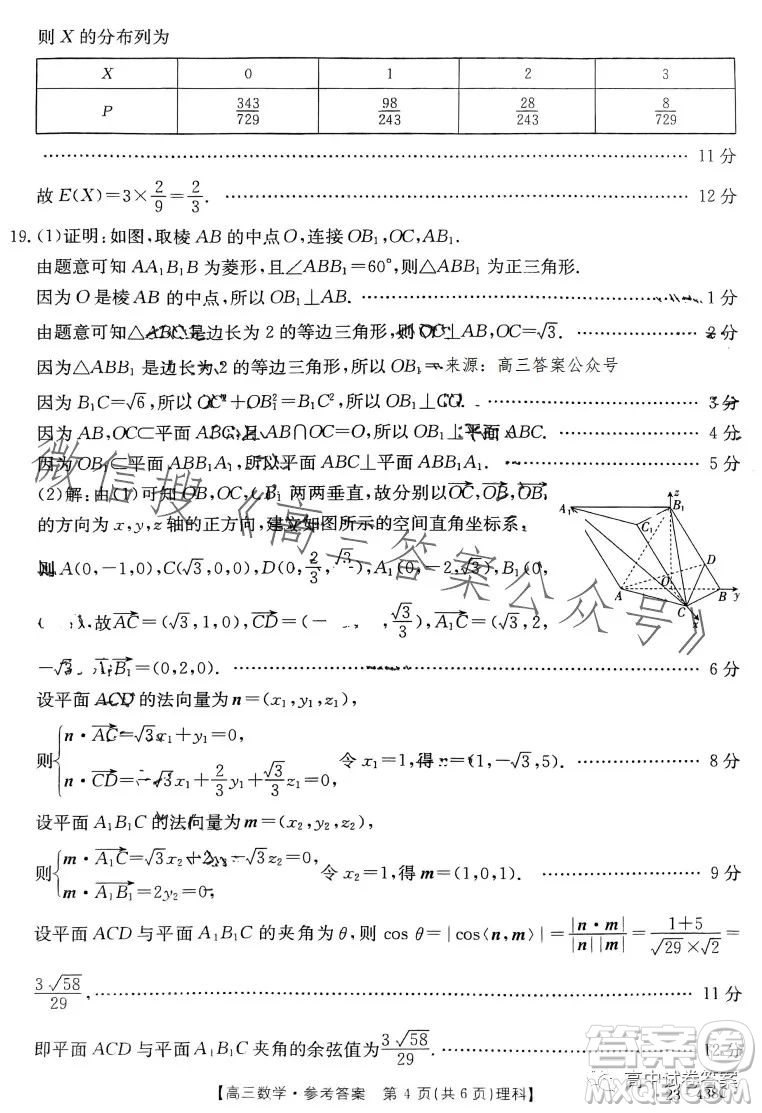 则 X 的分布列为
X 0 1 2 3
P 343/729 98/243 28/243 8/729
11 分
故 E(X)=3×2/9=2/3. 12 分
19.(1)证明:如图,取棱 AB 的中点 O,连接 OB₁,OC,AB₁.
由题意可知 AA₁B₁B 为菱形,且∠ABB₁=60°,则△ABB₁ 为正三角形.
因为 O 是棱 AB 的中点,所以 OB₁⊥AB. 1 分
由题意可知△ABC 是边长为 2 的等边三角形,则 OC⊥AB,OC=√3. 2 分
因为△ABB₁ 是边长为 2 的等边三角形,所以 OB₁= 来源:高三答案公众号
因为 B₁C=√6,所以 OC²+OB₁²= 所以 OB₁⊥OC. 3 分
因为 AB,OC⊂平面 ABC,且 AB∩OC=O,所以 OB₁⊥平面 ABC. 4 分
因为 OB₁⊂平面 ABB₁A₁,所以平面 ABC⊥平面 ABB₁A₁. 5 分
(2)解:由(1)可知 OB,OC,OB₁ 两两垂直,故分别以OC,OB,OB₁
的方向为 x,y,z 轴的正方向,建立如图所示的空间直角坐标系,
则 A(0,-1,0),C(√3,0,0),D(0,2/3, A₁(0,-2,√3),B₁(0,
故AC=(√3,1,0),CD=(- , √3/3),A₁C=(√3,2,
-√3 A₁B₁=(0,2,0). 6 分
设平面 ACD 的法向量为 n=(x₁,y₁,z₁),
则{n·AC=√3x₁+y₁=0,
n·CD=-√3x₁+2/3y₁+√3/3z₁=0, 令 x₁=1,得 n=(1,-√3,5). 8 分
设平面 A₁B₁C 的法向量为 m=(x₂,y₂,z₂),
则{m·A₁C=√3x₂+2y₂-√3z₂=0,
m·A₁B₁=2y₂=0, 令 x₂=1,得 m=(1,0,1). 9 分
设平面 ACD 与平面 A₁B₁C 的夹角为 θ,则 cos θ=|cos⟨n,m⟩|=|n·m|/|n||m|=1+5/√29×√2=
3√58/29, 11 分
即平面 ACD 与平面 A₁B₁C 夹角的余弦值为3√58/29. 12 分
A₁ z B₁ C₁ D A O B y C x
微信搜《高三答案公众号》
答案圈
高中试卷答案
【高三数学·参考答案 第 4 页(共 6 页)理科】
23-438C